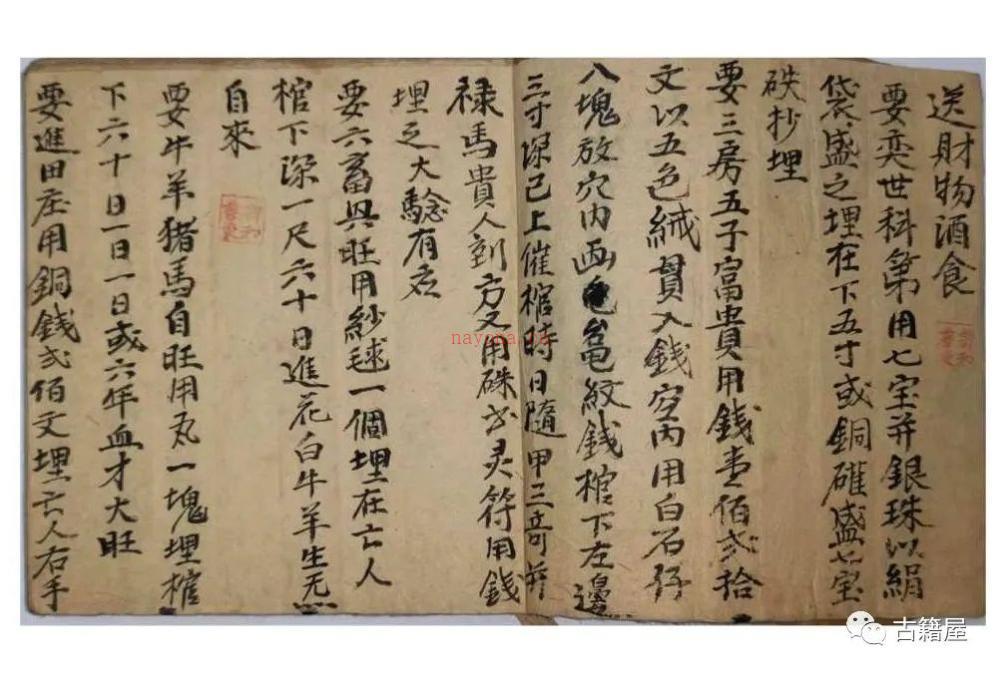 送財物酒食
要奕世科第用七宝并銀珠以絹
袋盛之埋在下五寸或銅礶盛七宝
砄抄埋
要三房五子富貴用錢壹佰弍拾
文以五色絨貫入錢空内用白石仔
八塊放穴内画龟黿紋錢棺下左邊
三寸深已上催棺時日隨甲三奇并
禄馬貴人到方又用硃书灵符用錢
埋之大騐有应
要六畜興旺用紗毬一個埋在亡人
棺下深一尺六十日進花白牛羊生无
自來
要牛羊猪馬自旺用丸一塊埋棺
下六十日一日一日或六年血才大旺
要進田庄用銅錢弍佰文埋亡人右手
nayona.cn
古籍屋